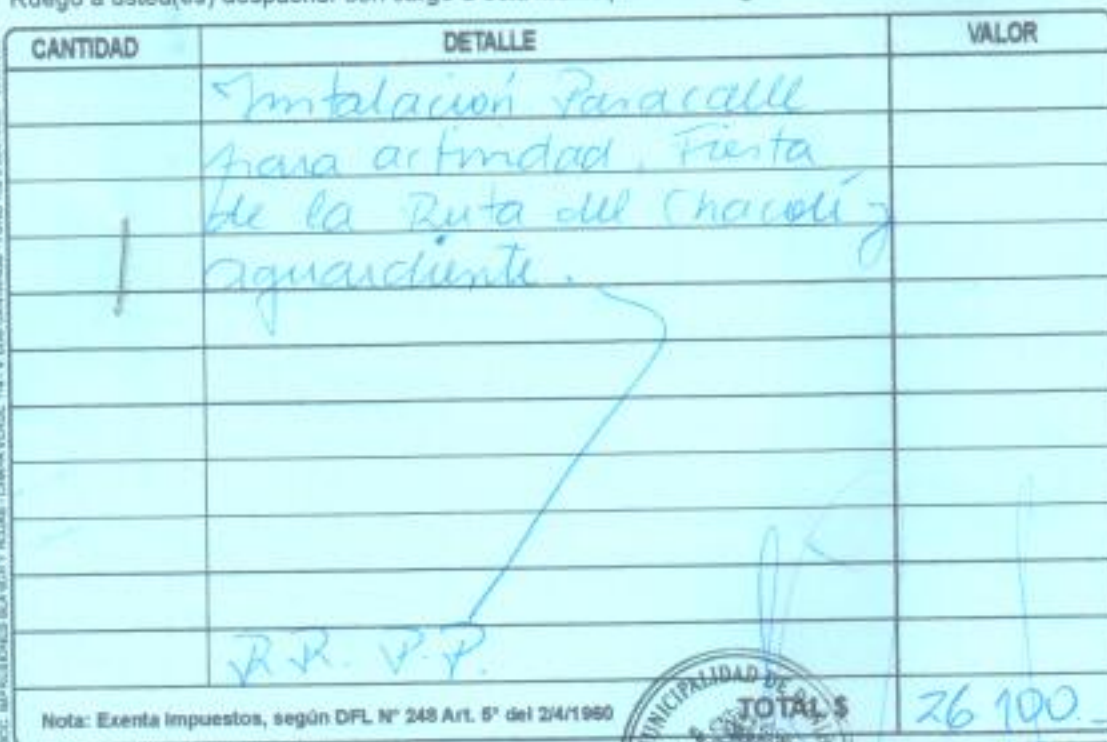 CANTIDAD DETALLE VALOR
Instalación Paracalle
para actividad, Fiesta
1 de la Ruta del Chacolí y
aguardiente.
R.R. P.P.
Nota: Exenta Impuestos, según DFL N° 248 Art. 5° del 2/4/1960 TOTAL $ 26 100.-
MUNICIPALIDAD DE